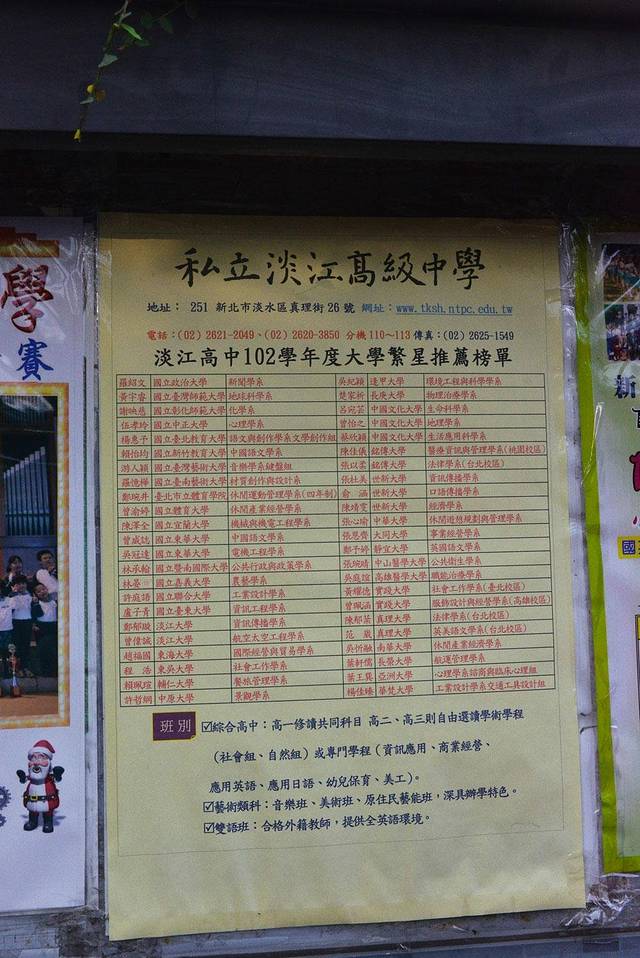 私立淡江高級中學
地址： 251 新北市淡水區真理街26號 網址：www.tksh.ntpc.edu.tw
電話：(02) 2621-2049、(02) 2620-3850 分機110～113 傳真：(02) 2625-1549
淡江高中102學年度大學繁星推薦榜單
羅紹文 國立政治大學 新聞學系 吳紀穎 逢甲大學 環境工程與科學學系
黃宇睿 國立臺灣師範大學 地球科學系 楚家祈 長庚大學 物理治療學系
謝映慈 國立彰化師範大學 化學系 呂宛芸 中國文化大學 生命科學系
伍孝玲 國立中正大學 心理學系 曾怡之 中國文化大學 地理學系
楊惠予 國立臺北教育大學 語文與創作學系文學創作組 蔡欣穎 中國文化大學 生活應用科學系
賴怡均 國立新竹教育大學 中國語文學系 陳佳儀 銘傳大學 醫療資訊與管理學系(桃園校區)
游人穎 國立臺灣藝術大學 音樂學系鍵盤組 張以柔 銘傳大學 法律學系(台北校區)
羅憶樺 國立臺南藝術大學 材質創作與設計系 張杜美 世新大學 資訊傳播學系
鄭琬井 臺北市立體育學院 休閒運動管理學系(四年制) 俞涵 世新大學 口語傳播學系
曾渝婷 國立體育大學 休閒產業經營學系 陳靖雯 世新大學 經濟學系
陳澤全 國立宜蘭大學 機械與機電工程學系 張心瑜 中華大學 休閒遊憩規劃與管理學系
曾威誌 國立東華大學 中國語文學系 張恩齊 大同大學 事業經營學系
吳冠達 國立東華大學 電機工程學系 鄭予婷 靜宜大學 英國語文學系
林承翰 國立暨南國際大學 公共行政與政策學系 張琬晴 中山醫學大學 公共衛生學系
林晏 國立嘉義大學 農藝學系 吳庭誼 高雄醫學大學 職能治療學系
許庭語 國立聯合大學 工業設計學系 黃耀德 實踐大學 社會工作學系(臺北校區)
盧子青 國立臺東大學 資訊工程學系 曾珮涵 實踐大學 服飾設計與經營學系(高雄校區)
鄭郁璇 淡江大學 資訊傳播學系 陳郁棻 真理大學 法律學系(台北校區)
曾偉誠 淡江大學 航空太空工程學系 范崴 真理大學 英美語文學系(台北校區)
趙福國 東海大學 國際經營與貿易學系 吳忻融 南華大學 休閒產業經濟學系
程浩 東吳大學 社會工作學系 葉軒儒 長榮大學 航運管理學系
賴珮瑄 輔仁大學 餐旅管理學系 葉王巽 亞洲大學 心理學系諮商與臨床心理組
許哲綱 中原大學 景觀學系 楊佳臻 華梵大學 工業設計學系交通工具設計組
班別 ☑綜合高中：高一修讀共同科目 高二、高三則自由選讀學術學程
(社會組、自然組)或專門學程(資訊應用、商業經營、
應用英語、應用日語、幼兒保育、美工)。
☑藝術類科：音樂班、美術班、原住民藝能班，深具辦學特色。
☑雙語班：合格外籍教師，提供全英語環境。
學
賽
新
國